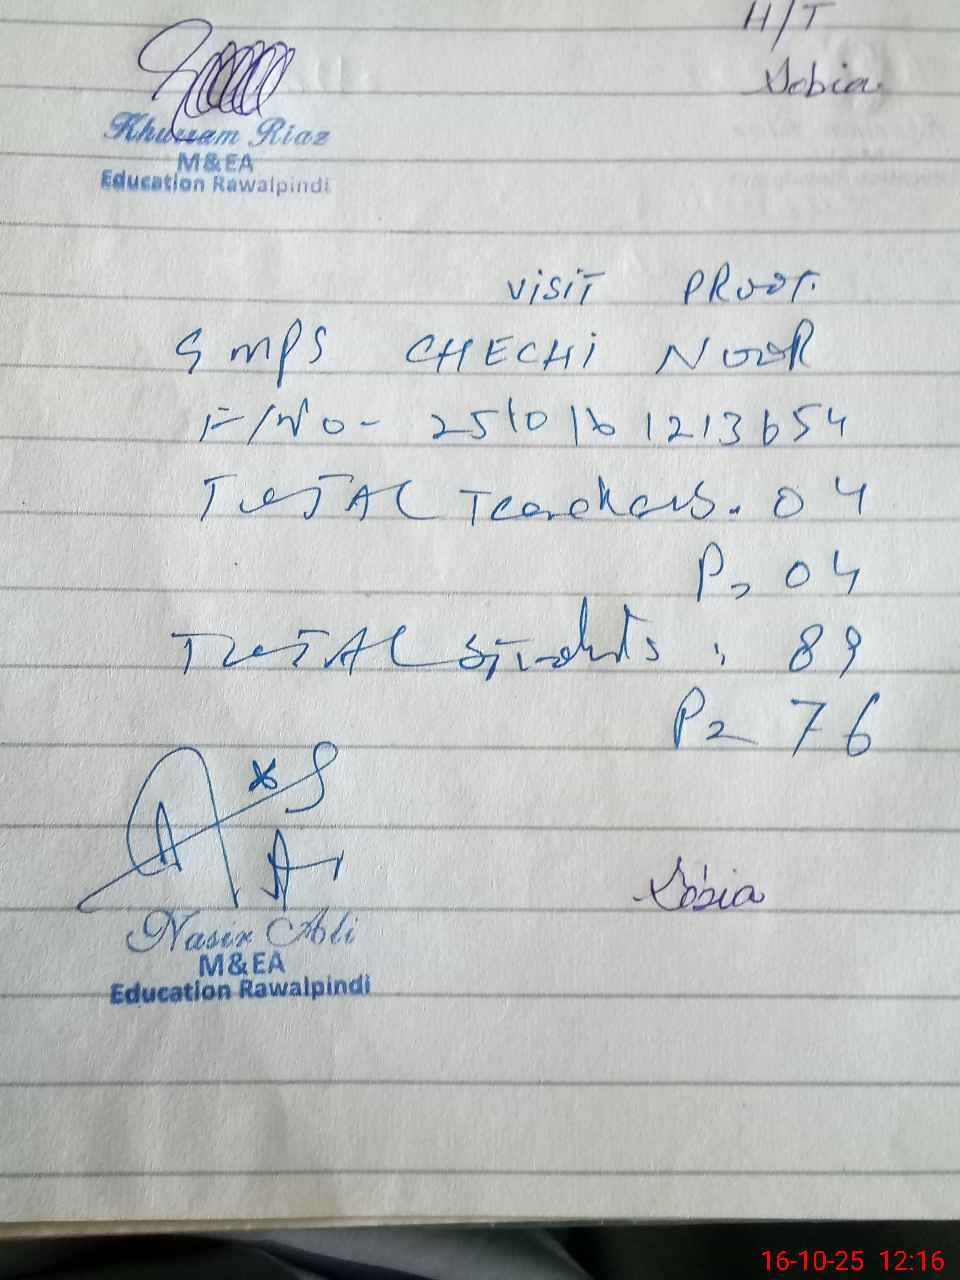 H/T
Sobia
Khurram Riaz
M&EA
Education Rawalpindi
VISIT PROOF.
GMPS CHECHI NOOR
F/No- 2510161213654
TOTAL Teachers. 04
P= 04
TOTAL Students : 89
P= 76
Nasir Ali
M&EA
Education Rawalpindi
Sobia
16-10-25 12:16